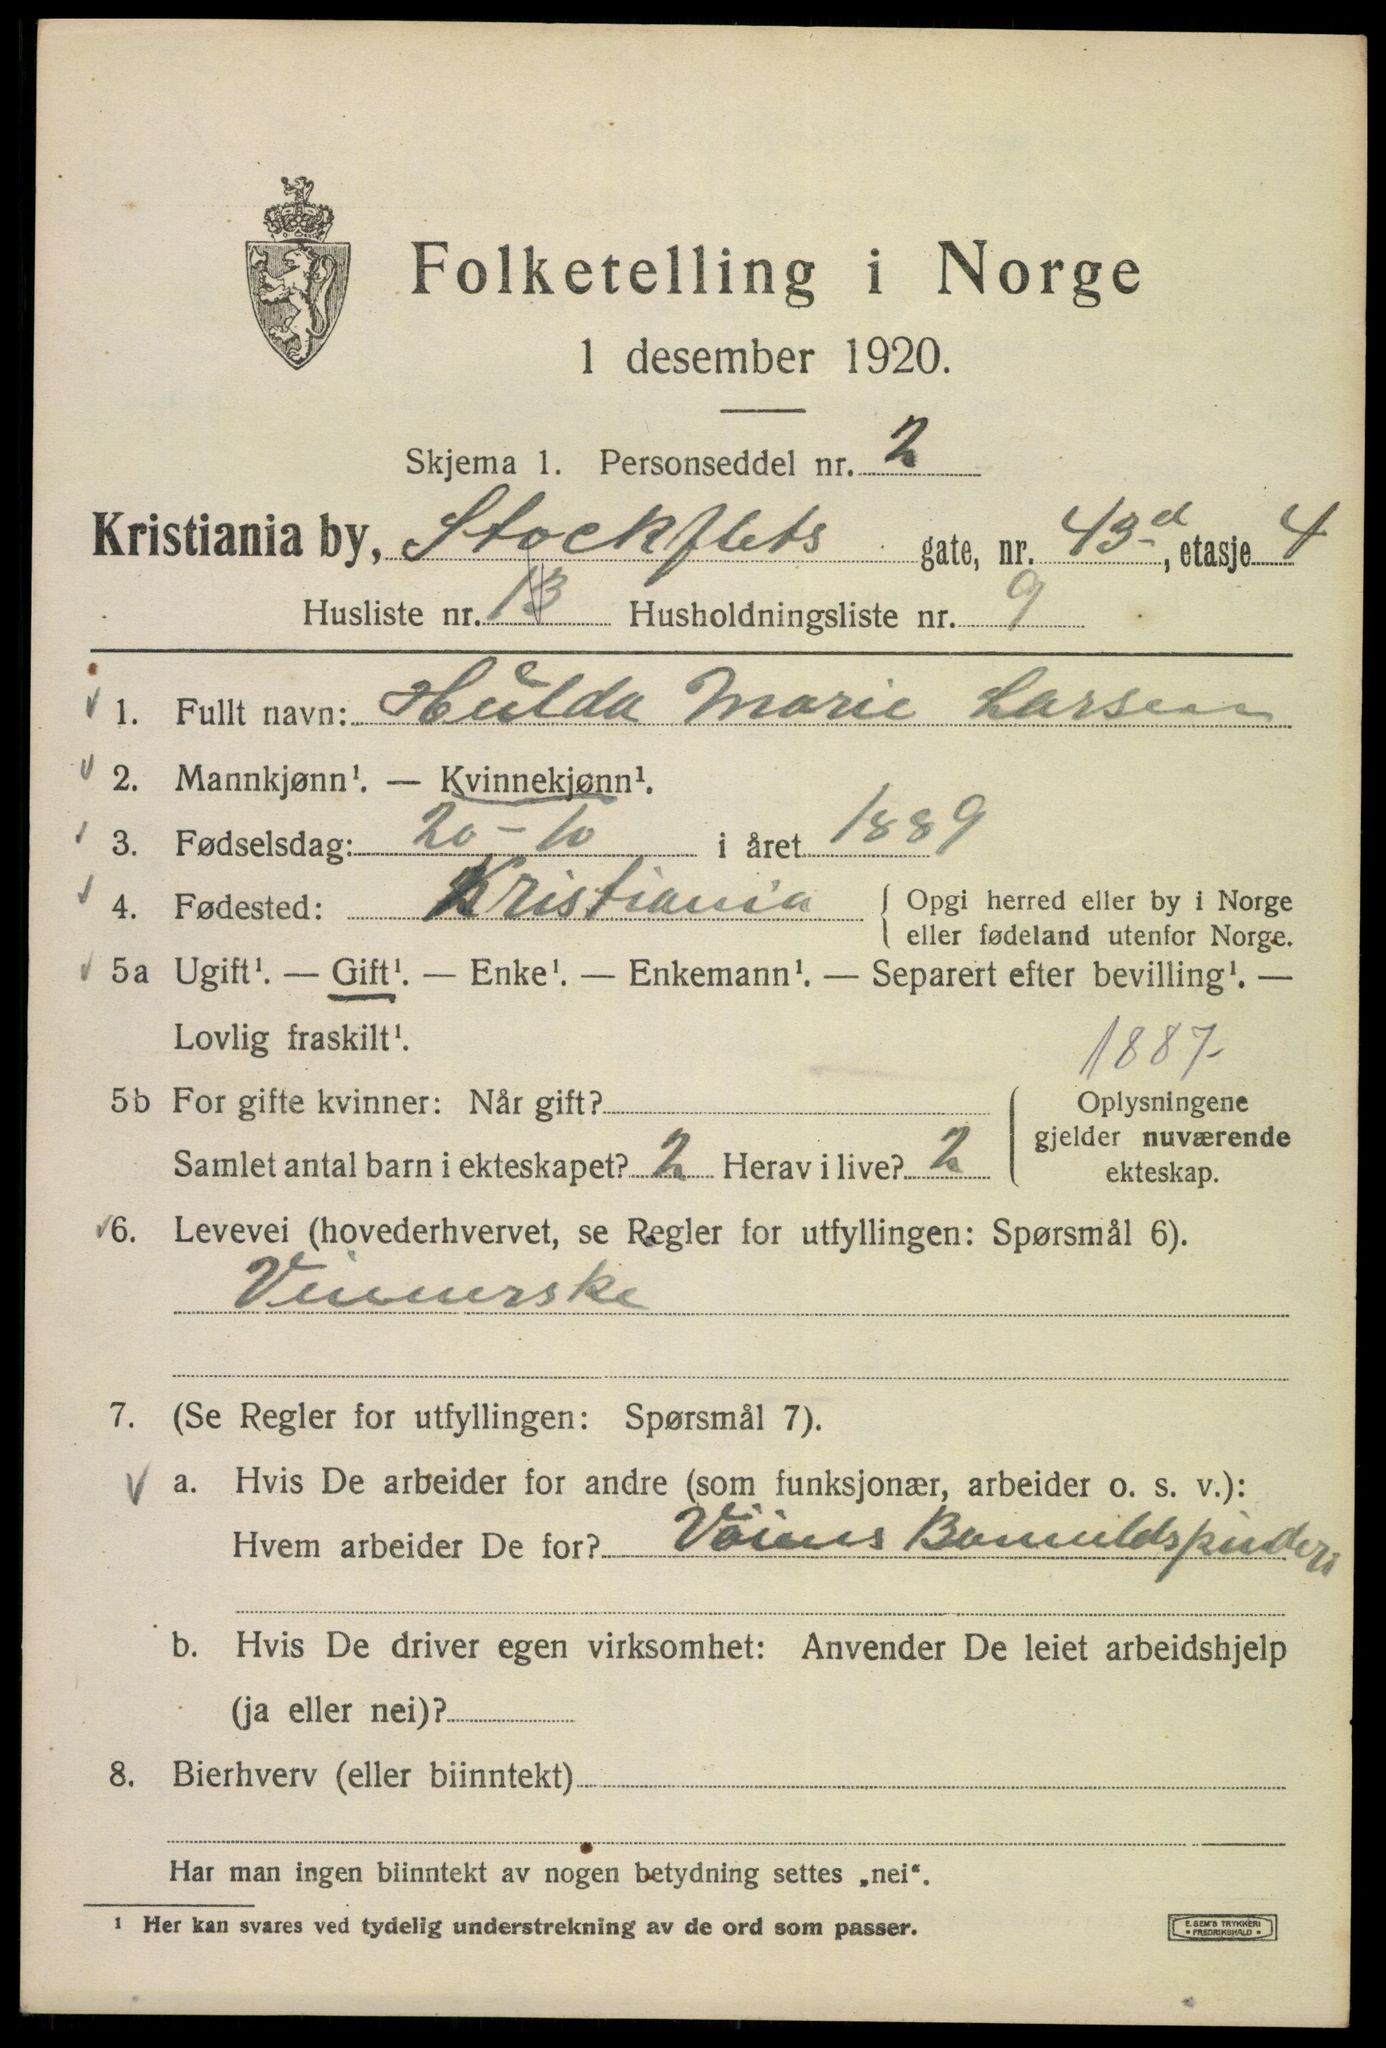 Folketelling i Norge
1 desember 1920.
Skjema 1. Personseddel nr. 2
Kristiania by, Stockflets gate, nr. 43d, etasje 4
Husliste nr. 13 Husholdningsliste nr. 9
1. Fullt navn: Hulda Marie Larsen
2. Mannkjønn¹. — Kvinnekjønn¹.
3. Fødselsdag: 20-10 i året 1889
4. Fødested: Kristiania { Opgi herred eller by i Norge
eller fødeland utenfor Norge.
5a Ugift¹. — Gift¹. — Enke¹. — Enkemann¹. — Separert efter bevilling¹. —
Lovlig fraskilt¹.
1887-
5b For gifte kvinner: Når gift? { Oplysningene
gjelder nuværende
Samlet antal barn i ekteskapet? 2 Herav i live? 2
ekteskap.
6. Levevei (hovederhvervet, se Regler for utfyllingen: Spørsmål 6).
Vinnerske
7. (Se Regler for utfyllingen: Spørsmål 7).
a. Hvis De arbeider for andre (som funksjonær, arbeider o. s. v.):
Hvem arbeider De for? Vöiens Bomuldspinderi
b. Hvis De driver egen virksomhet: Anvender De leiet arbeidshjelp
(ja eller nei)?
8. Bierhverv (eller biinntekt)
Har man ingen biinntekt av nogen betydning settes „nei“.
¹ Her kan svares ved tydelig understrekning av de ord som passer.
E. SEM'S TRYKKERI
• FREDRIKSHALD •